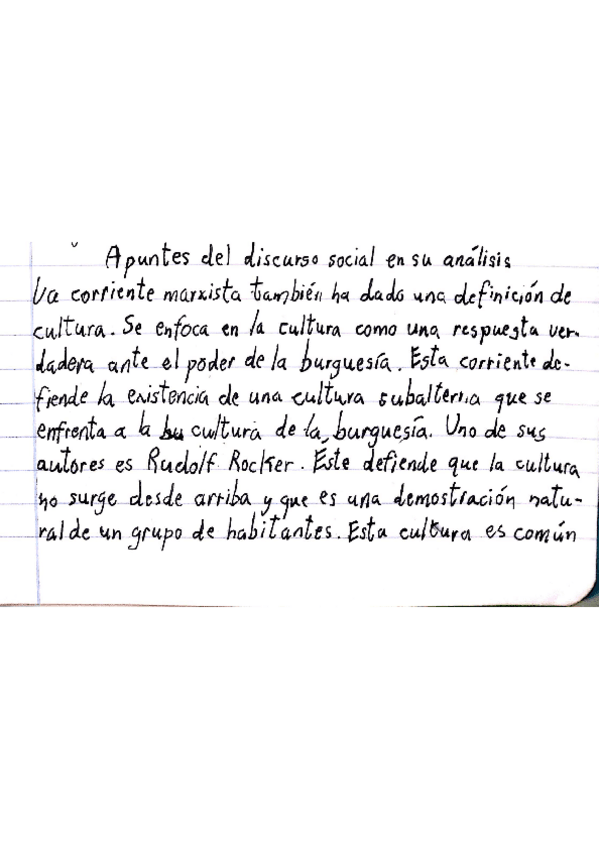 Apuntes del discurso social en su análisis
La corriente marxista también ha dado una definición de
cultura. Se enfoca en la cultura como una respuesta ver-
dadera ante el poder de la burguesía. Esta corriente de-
fiende la existencia de una cultura subalterna que se
enfrenta a la bu cultura de la burguesía. Uno de sus
autores es Rudolf Rocker. Este defiende que la cultura
no surge desde arriba y que es una demostración natu-
ral de un grupo de habitantes. Esta cultura es común